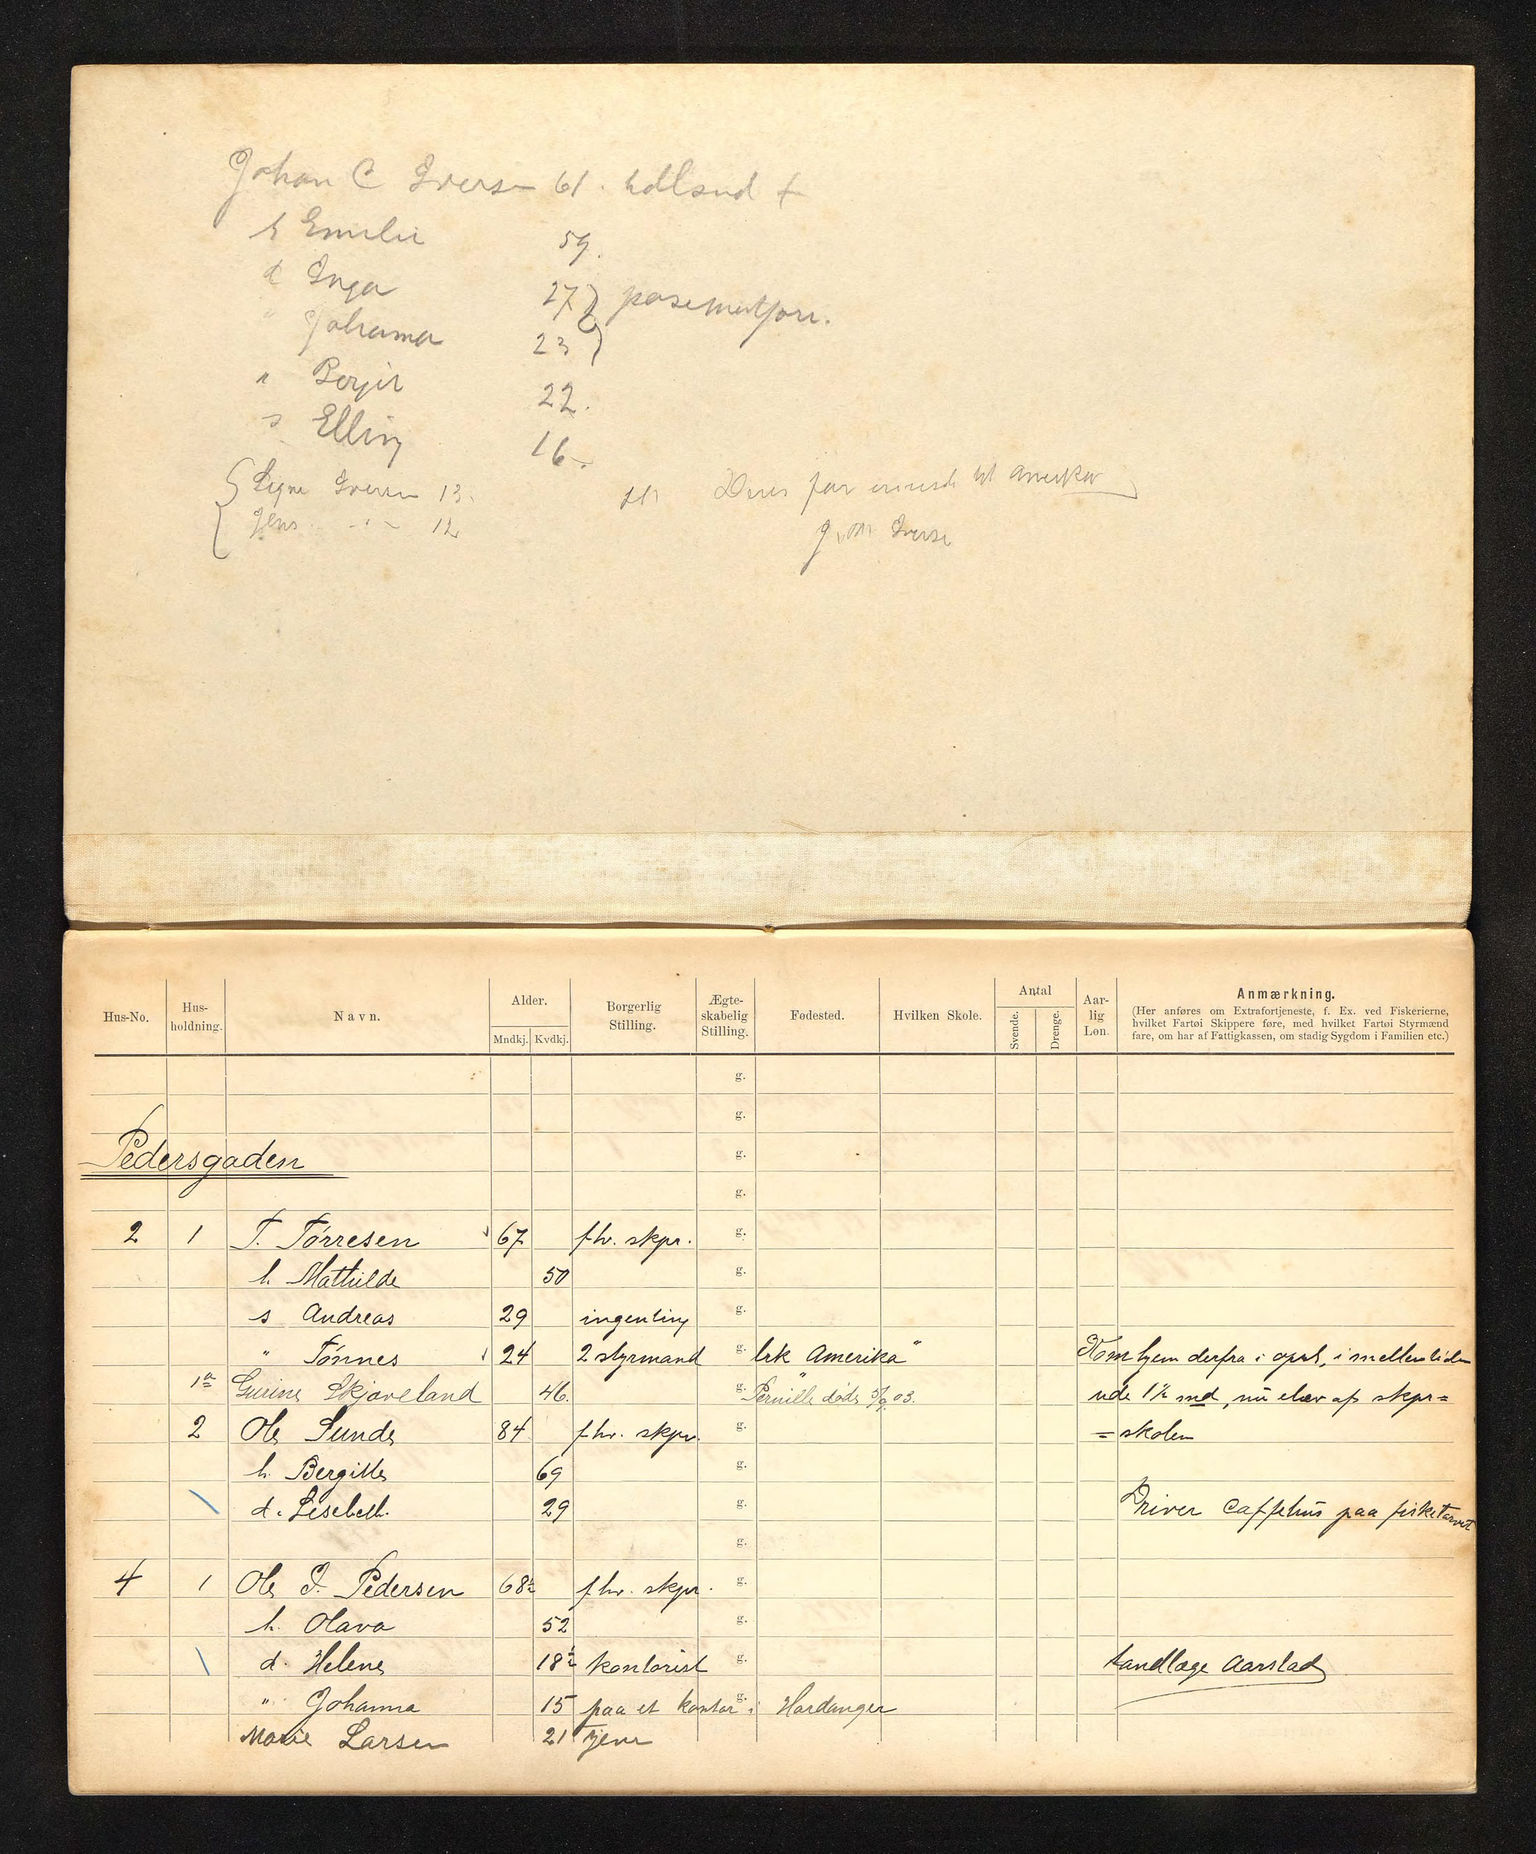 Johan C Iversen 61. udland +
h Emilie 59.
d Inga 27
" Johanna 23
" Bergit 22.
s Elling 16
Signe Iversen 13.
Jens -"- 12
Deres far reiste til Amerika
Iversen
Hus-No. Hus-holdning. Navn. Alder. Mndkj. Kvdkj. Borgerlig Stilling. Ægte-skabelig Stilling. Fødested. Hvilken Skole. Antal Svende. Drenge. Aar-lig Løn. Anmærkning.
(Her anføres om Extrafortjeneste, f. Ex. ved Fiskerierne,
hvilket Fartøi Skippere føre, med hvilket Fartøi Styrmænd
fare, om har af Fattigkassen, om stadig Sygdom i Familien etc.)
g.
g.
Pedersgaden g.
g.
2 1 T. Tørresen 67 fhv. skpr. g.
h. Mathilde 50 g.
s Andreas 29 ingenting g.
" Tønnes 24 2 styrmand g. brk "Amerika" Kom hjem derfra i april, i mellemtiden
1a Gurine Skjæveland 46. g. Pernille døde 5/9 03. ude 1½ md, nu elev af skpr=
2 Ole Sunde 84 fhv. skpr. g. =skolen
h. Bergitte 69 g.
d. Lisebeth. 29 g. Driver caffehus paa fisketorvet
g.
4 1 Ole J. Pedersen 68½ fhv. skpr. g.
h. Olava 52 g.
d. Helene 18½ kontorist g. tandlæge Aarstad
" Johanna 15 paa et kontor i g. Hardanger
Marie Larsen 21 tjener